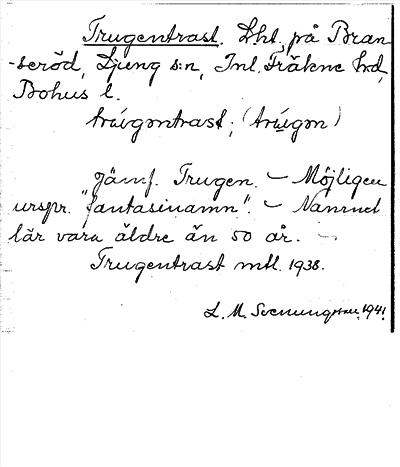 Trugentrast. Lht, på Bran
-seröd, Ljung s:n, Inl. Fräkne hd,
Bohus l.
trúgɷntrast; (trúgɷn)
Jämf. Trugen. – Möjligen
urspr. "fantasinamn". – Namnet
lär vara äldre än 50 år. –
Trugentrast mtl. 1938.
L. M. Svenungsson. 1941.